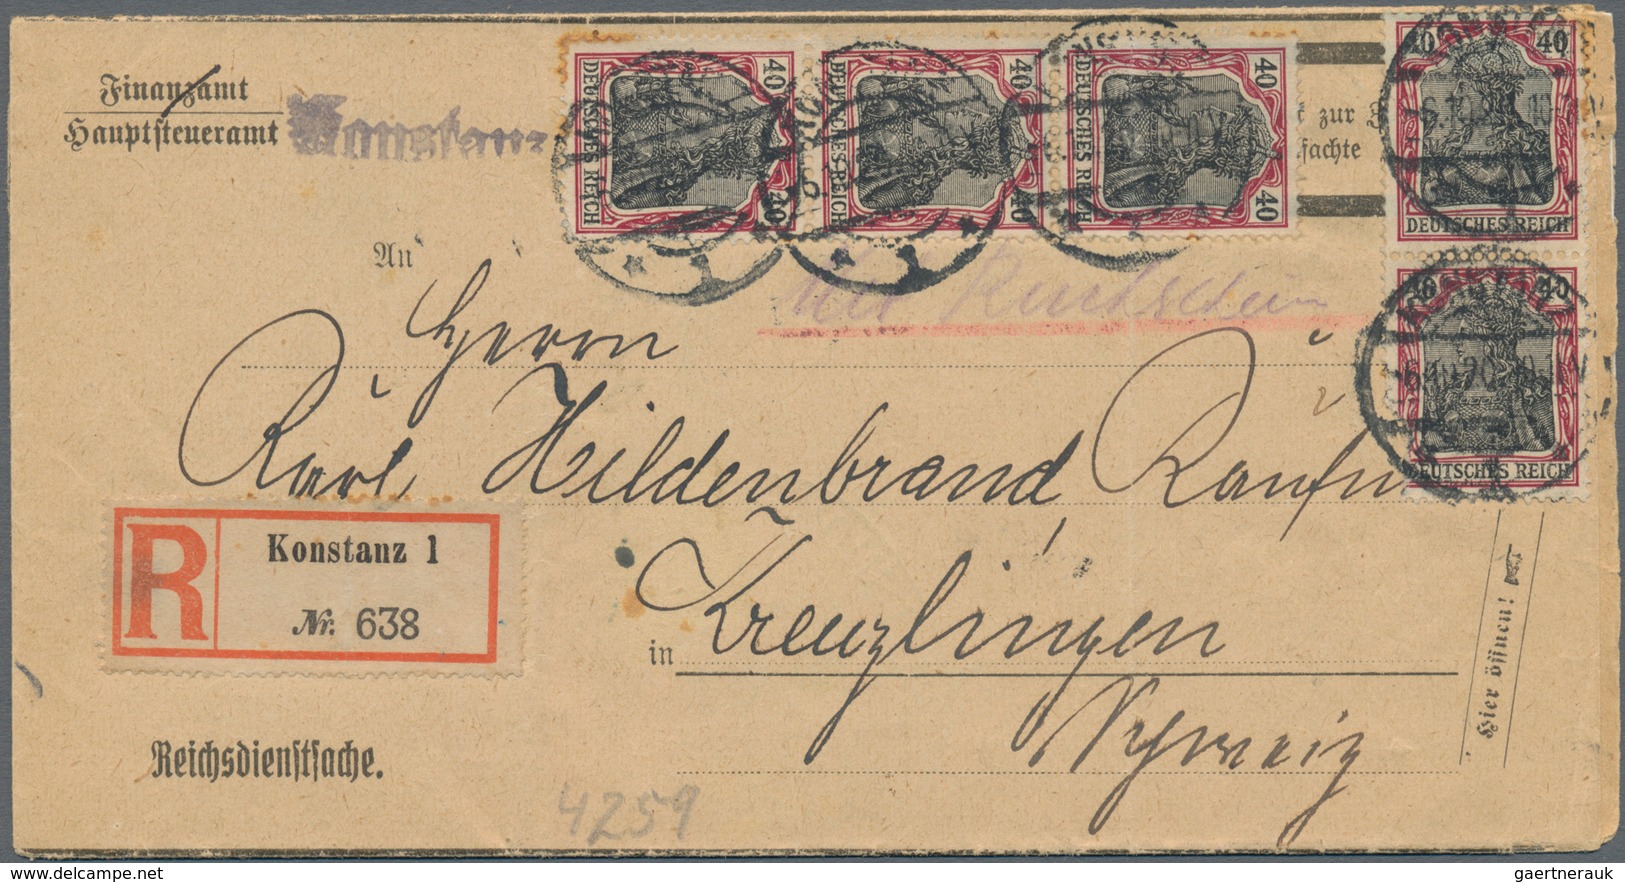 Finanzamt
Hauptsteueramt Konstanz
zur
sachte
40 40
DEUTSCHES REICH
40 40
DEUTSCHES REICH
40 40
DEUTSCHES REICH
40 40
DEUTSCHES REICH
40 40
DEUTSCHES REICH
An
mit Rückschein
Herrn
Karl Hildenbrand Kaufm
in Kreuzlingen
Schweiz
R
Konstanz 1
Nr. 638
Hier öffnen!
Reichsdienstsache.
4259
gaertnerauk